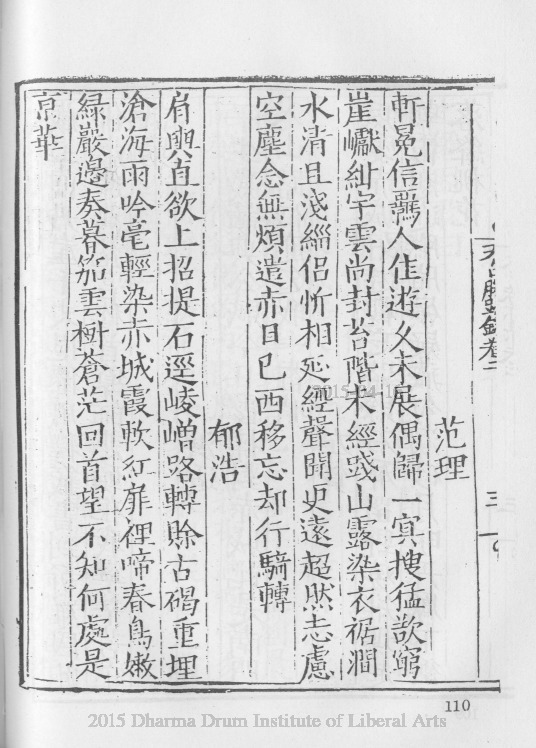 天台勝蹟錄卷二
三
范理
軒冕信羈人佳遊久未展偶歸一冥搜猛欲窮
崖巘紺宇雲尚封苔階未經踐山露染衣裾澗
水清且淺緇侶忻相延經聲聞更遠超然志慮
空塵念無煩遣赤日已西移忘却行騎轉
郁浩
肩輿直欲上招提石逕崚嶒路轉賒古碣重埋
滄海雨吟毫輕染赤城霞軟紅扉裡啼春鳥嫩
緑嚴邊奏暮笳雲樹蒼茫回首望不知何處是
京華
110
2015 Dharma Drum Institute of Liberal Arts